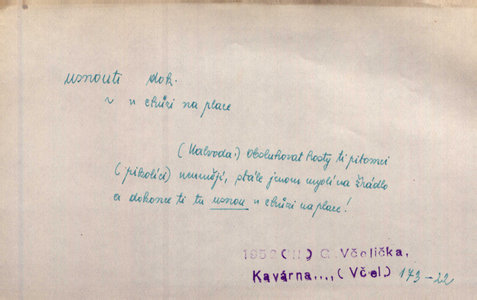 usnouti dok.
v u chůzi na place
(Kalvoda:) Obsluhovat hosty ti pitomci
(pikolíci) neumějí, stále jenom myslí na žrádlo
a dokonce ti tu usnou u chůzi na place!
195 ( ) G. Včelička,
Kavárna...,(Včel) 173-22